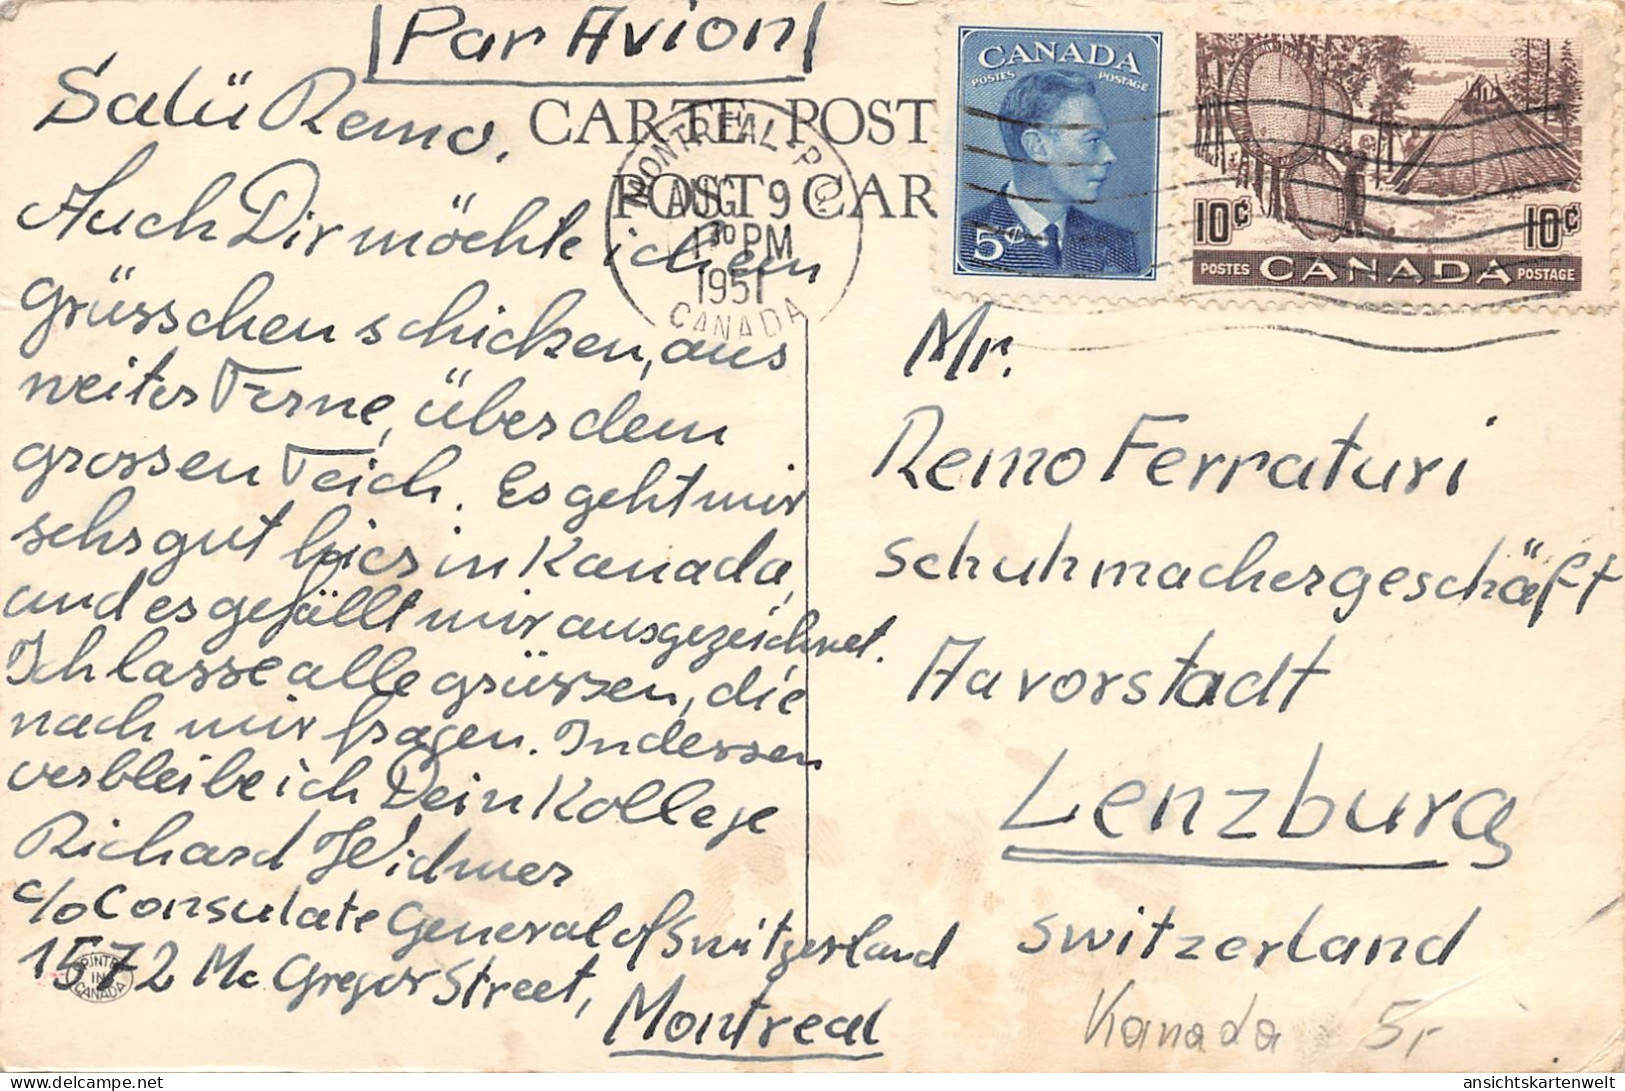 Par Avion
Salü Remo,
CARTE POST
POST CAR
MONTREAL P.Q.
AUG 9
1 30 PM
1951
CANADA
CANADA
POSTES POSTAGE
5¢
10¢ 10¢
POSTES CANADA POSTAGE
Auch Dir möchte ich ein
grüsschen schicken, aus
weiter Ferne, über dem
grossen Teich. Es geht mir
sehr gut hier in Kanada,
und es gefällt mir ausgezeichnet.
Ich lasse alle grüssen, die
nach mir fragen. Indessen
verbleibe ich Dein Kollege
Richard Widmer
c/o Consulate General of Switzerland
1572 Mc Gregor Street,
Montreal
PRINTED
IN
CANADA
Mr.
Remo Ferraturi
Schuhmachergeschäft
Aavorstadt
Lenzburg
Switzerland
Kanada 5,-
delcampe.net
ansichtskartenwelt